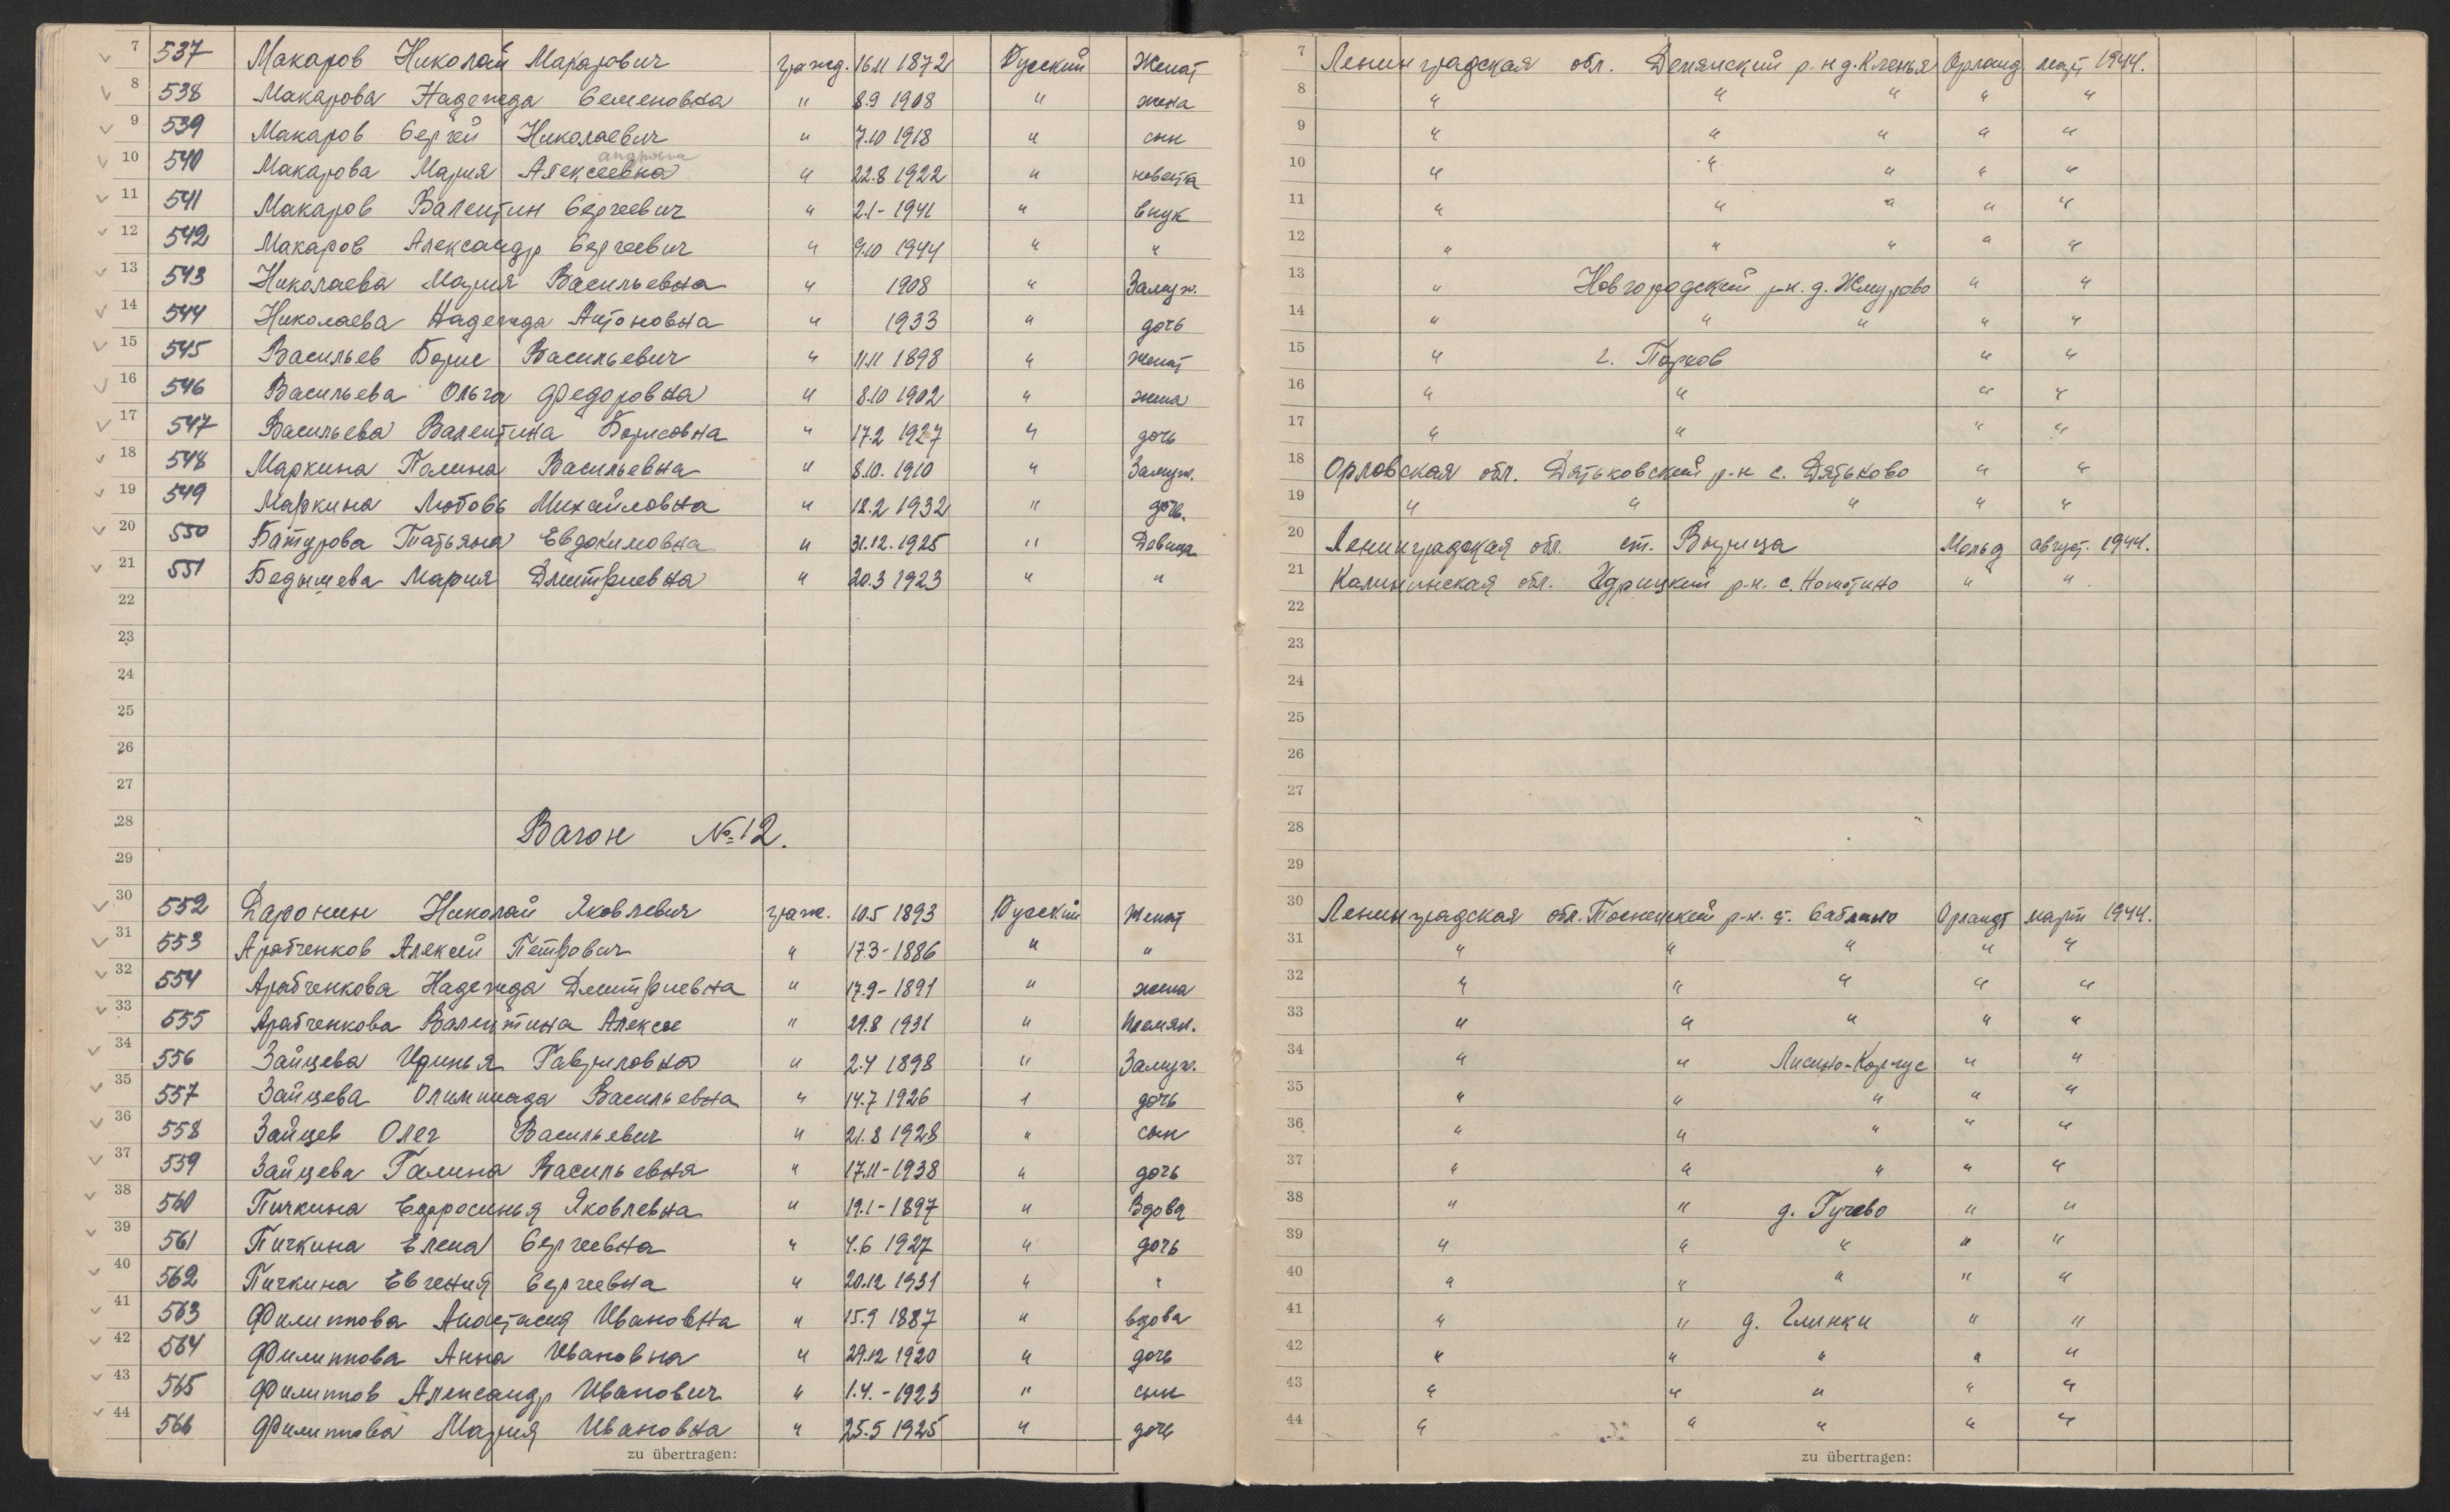 7 537 Макаров Николай Макарович гражд. 16.11 1872 Русский Женат 7 Ленинградская обл. Демянский р-н д. Кленья март 1944.
8 538 Макарова Надежда Семеновна " 8.9 1908 " жена 8 " " " " "
9 539 Макаров Сергей Николаевич " 7.10 1918 " сын 9 " " " " "
андровна
10 540 Макарова Мария Алексеевна " 22.8 1922 " невеста 10 " " " " "
11 541 Макаров Валентин Сергеевич " 2.1- 1941 " внук 11 " " " " "
12 542 Макаров Александр Сергеевич " 9.10 1944 " " 12 " " " " "
13 543 Николаева Мария Васильевна " 1908 " Замуж. 13 " Новгородский р-н. д. Жмурово " "
14 544 Николаева Надежда Антоновна " 1933 " дочь 14 " " " " "
15 545 Васильев Борис Васильевич " 11.11 1898 " женат 15 " г. Порхов " "
16 546 Васильева Ольга Федоровна " 8.10 1902 " жена 16 " " " "
17 547 Васильева Валентина Борисовна " 17.2 1927 " дочь 17 " " " "
18 548 Маркина Полина Васильевна " 8.10. 1910 " Замуж. 18 Орловская обл. Дятьковский р-н с. Дятьково " "
19 549 Маркина Любовь Михайловна " 18.2 1932 " дочь. 19 " " " " "
20 550 Батурова Татьяна Евдокимовна " 31.12. 1925 " Девица 20 Ленинградская обл. ст. Вырица Мольд август. 1944.
21 551 Бедышева Мария Дмитриевна " 20.3 1923 " " 21 Калининская обл. Идрицкий р-н. с. " "
22 22
23 23
24 24
25 25
26 26
27 27
28 Вагон №12. 28
29 29
30 552 Даронин Николай Яковлевич граж. 10.5 1893 Русский Женат 30 Ленинградская обл. Тосненский р-н. Саблино март 1944.
31 553 Арабченков Алексей Петрович " 17.3-1886 " " 31 " " " " "
32 554 Арабченкова Надежда Дмитриевна " 17.9-1891 " жена 32 " " " " "
33 555 Арабченкова Валентина Алексее " 29.8 1931 " племян. 33 " " " " "
34 556 Зайцева Иринья Гавриловна " 2.4 1898 " Замуж. 34 " " Лисино-Корпус " "
35 557 Зайцева Олимпиада Васильевна " 14.7 1926 " дочь 35 " " " " "
36 558 Зайцев Олег Васильевич " 21.8 1928 " сын 36 " " " " "
37 559 Зайцева Галина Васильевна " 17.11-1938 " дочь 37 " " " " "
38 560 Пичкина Ефросинья Яковлевна " 19.1-1897 " Вдова 38 " " д. Гучево " "
39 561 Пичкина Елена Сергеевна " 4.6 1927 " дочь 39 " " " " "
40 562 Пичкина Евгения Сергеевна " 20.12 1931 " " 40 " " " " "
41 563 Филиппова Анастасия Ивановна " 15.9 1887 " вдова 41 " " д. Глинки " "
42 564 Филиппова Анна Ивановна " 29.12 1920 " дочь 42 " " " " "
43 565 Филиппов Александр Иванович " 1.4.-1923 " сын 43 " " " " "
44 566 Филиппова Мария Ивановна " 25.5 1925 " дочь 44 " " " " "
zu übertragen: zu übertragen: